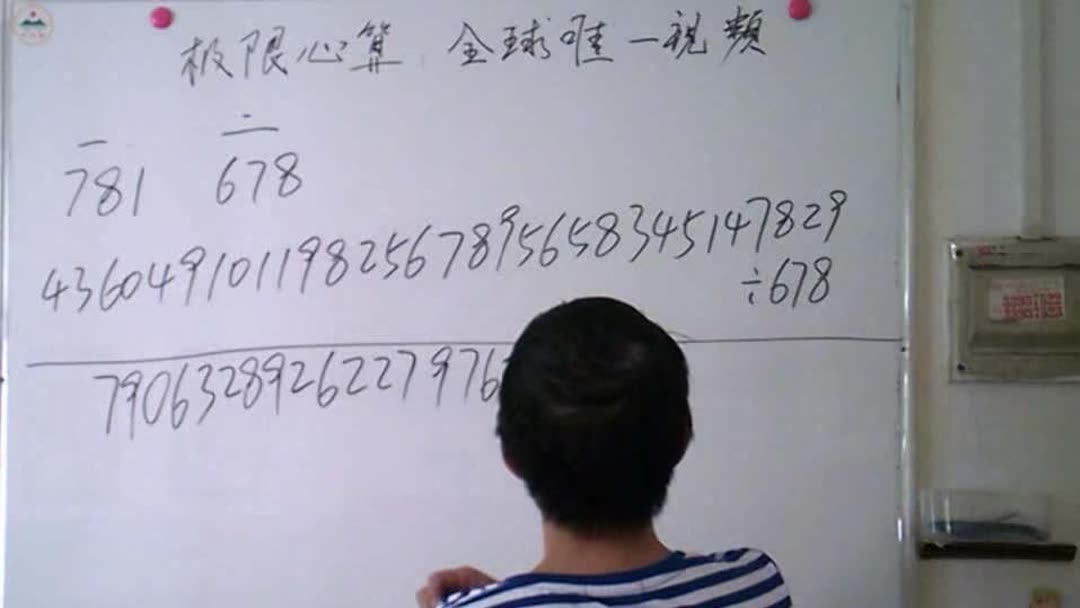 极限心算 全球唯一视频
一 二
781 678
5360491011982567895658345147829
÷678
7906328926227976